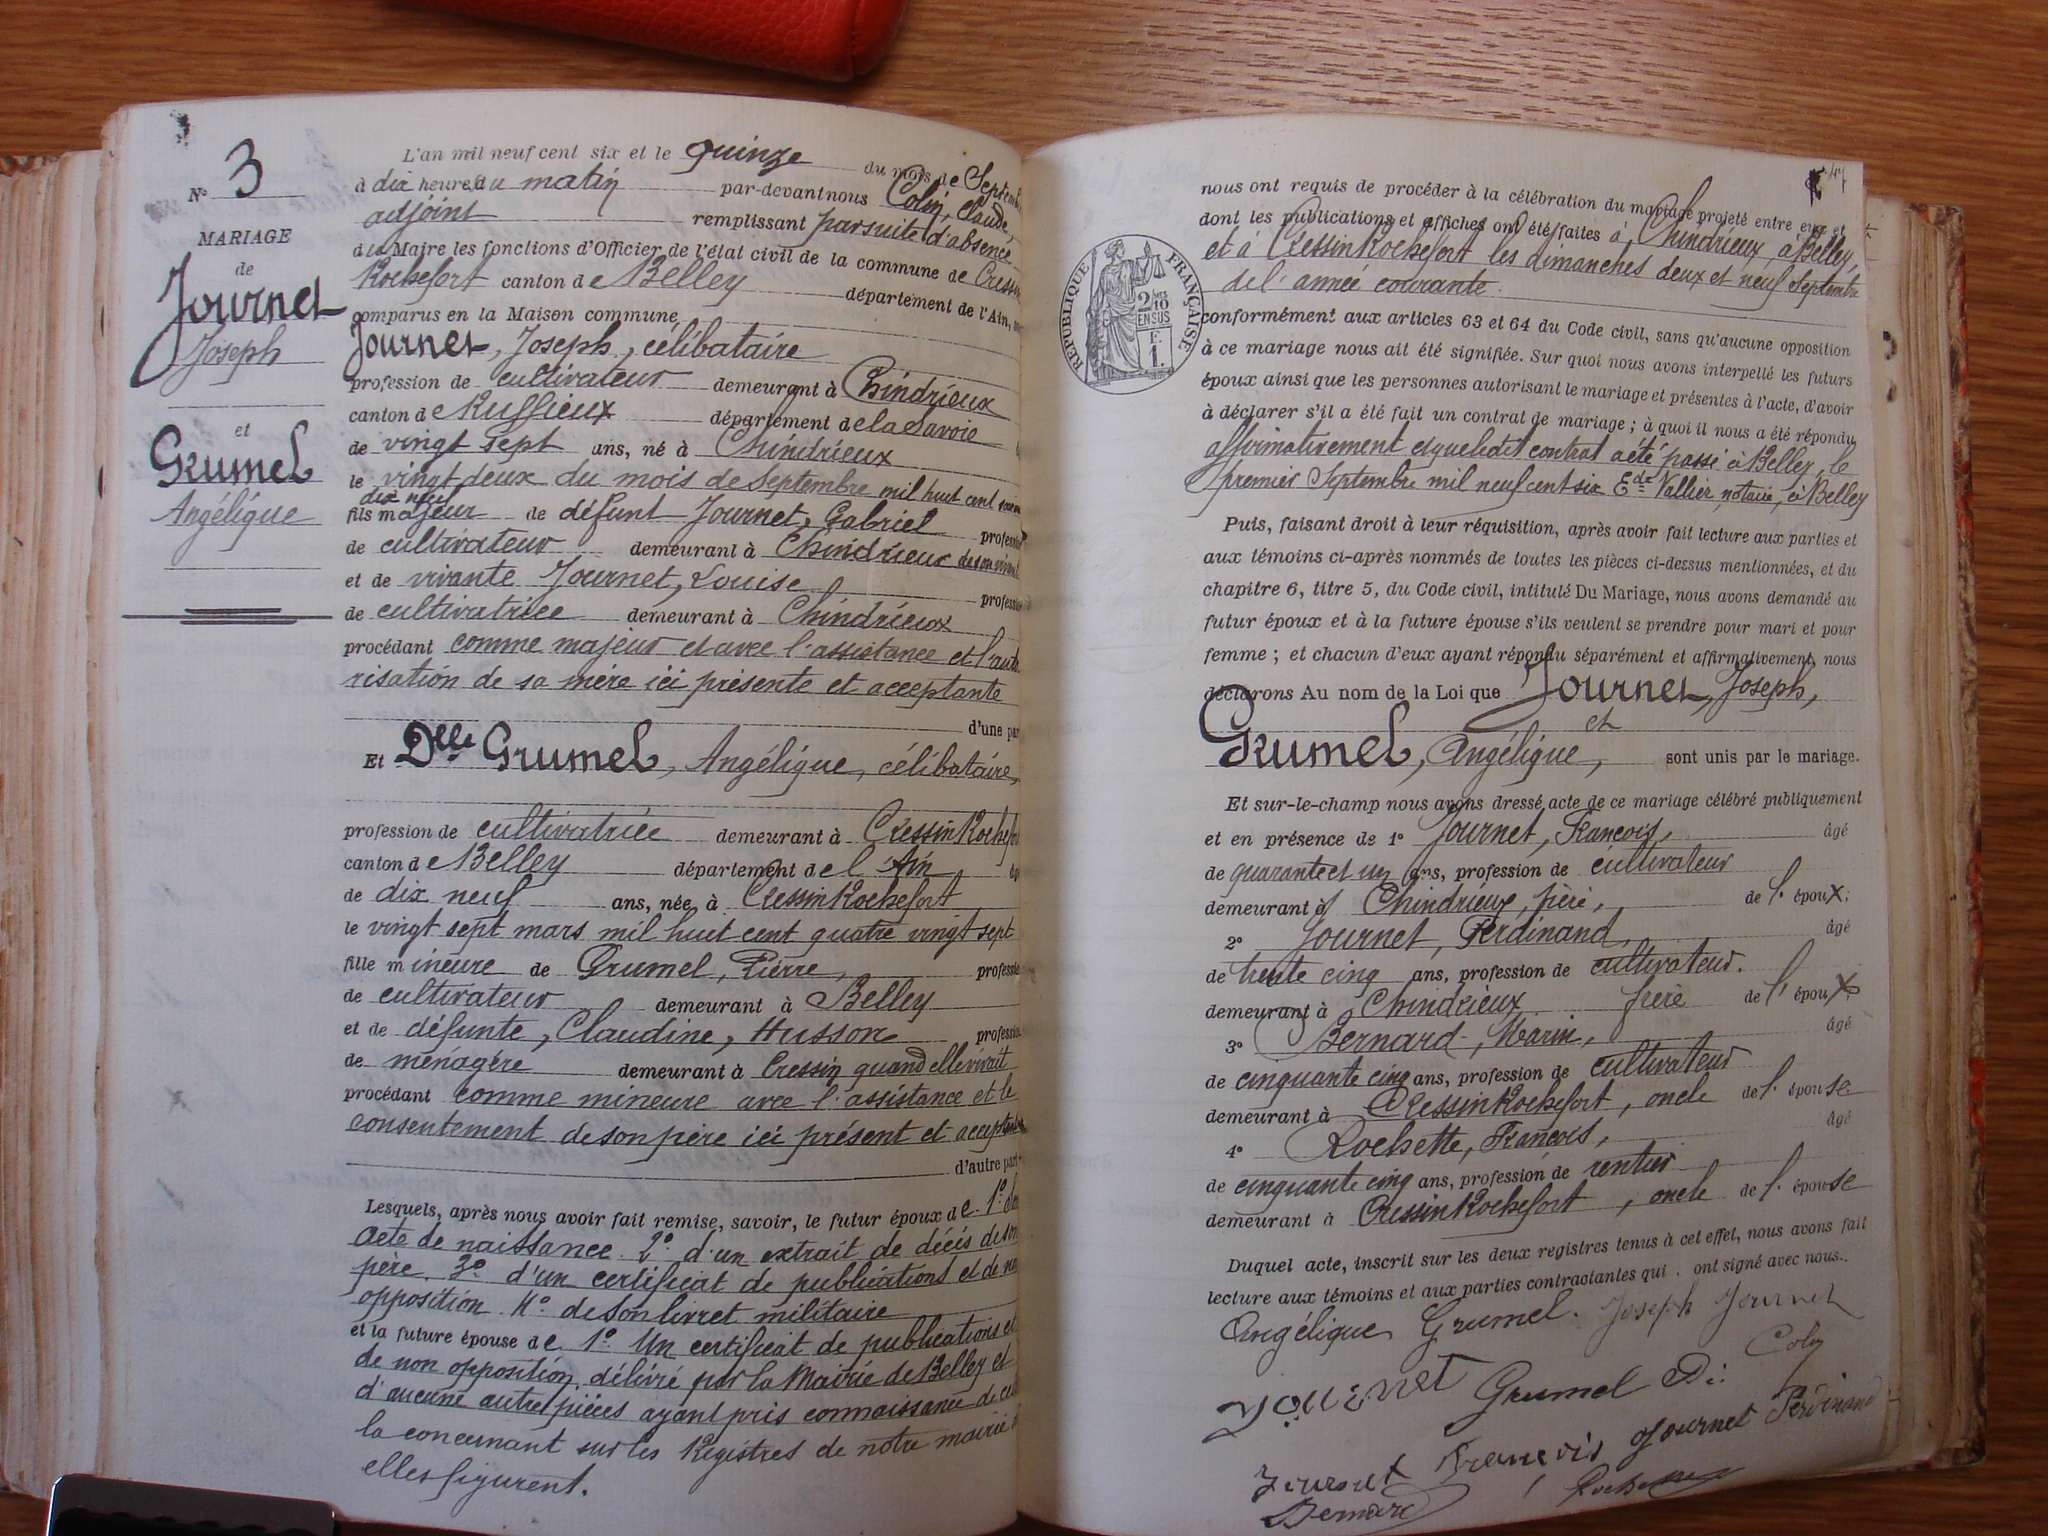 N° 3
MARIAGE
de
Journet
Joseph
et
Grumel
Angélique
L'an mil neuf cent six et le quinze du mois de Septemb
à dix heures du matin par-devant nous Colin, Claude,
adjoint remplissant par suite d'absence
du Maire les fonctions d'Officier de l'état civil de la commune de Cressin
Rochefort canton de Belley département de l'Ain,
comparus en la Maison commune
Journet, Joseph, célibataire
profession de cultivateur demeurant à Chindrieux
canton de Ruffieux département de la Savoie
de vingt sept ans, né à Chindrieux
le vingt deux du mois de Septembre mil huit cent
dix neuf
fils majeur de défunt Journet, Gabriel profession
de cultivateur demeurant à Chindrieux de son vivant
et de vivante Journet, Louise profession
de cultivatrice demeurant à Chindrieux
procédant comme majeur et avec l'assistance et l'auto
risation de sa mère ici présente et acceptante
d'une part
Et Delle Grumel, Angélique, célibataire,
profession de cultivatrice demeurant à Cressin Rochefor
canton de Belley département de l'Ain
de dix neuf ans, née à Cressin Rochefort
le vingt sept mars mil huit cent quatre vingt sept
fille mineure de Grumel, Pierre, profession
de cultivateur demeurant à Belley
et de défunte, Claudine, Husson profession
de ménagère demeurant à Cressin quand elle vivait
procédant comme mineure avec l'assistance et le
consentement de son père ici présent et acceptant
d'autre part
Lesquels, après nous avoir fait remise, savoir, le futur époux de 1° d'un
acte de naissance 2° d'un extrait de décès de son
père 3° d'un certificat de publications et de non
opposition 4° de son livret militaire
et la future épouse de 1° Un certificat de publications et
de non opposition, délivré par la Mairie de Belley et
d'aucune autre pièces ayant pris connaissance de
la concernant sur les Registres de notre mairie
elles figurent.
nous ont requis de procéder à la célébration du mariage projeté entre eux et
dont les publications et affiches ont été faites à Chindrieux, à Belley,
et à Cressin Rochefort les dimanches deux et neuf Septembre
de l'année courante.
RÉPUBLIQUE FRANÇAISE
2 10 MES
EN SUS
F.
1.
conformément aux articles 63 et 64 du Code civil, sans qu'aucune opposition
à ce mariage nous ait été signifiée. Sur quoi nous avons interpellé les futurs
époux ainsi que les personnes autorisant le mariage et présentes à l'acte, d'avoir
à déclarer s'il a été fait un contrat de mariage ; à quoi il nous a été répondu
affirmativement et que ledit contrat a été passé à Belley, le
premier Septembre mil neuf cent six Ede Vallier, notaire, à Belley
Puis, faisant droit à leur réquisition, après avoir fait lecture aux parties et
aux témoins ci-après nommés de toutes les pièces ci-dessus mentionnées, et du
chapitre 6, titre 5, du Code civil, intitulé Du Mariage, nous avons demandé au
futur époux et à la future épouse s'ils veulent se prendre pour mari et pour
femme ; et chacun d'eux ayant répondu séparément et affirmativement, nous
déclarons Au nom de la Loi que Journet, Joseph,
et
Grumel, Angélique, sont unis par le mariage.
Et sur-le-champ nous avons dressé acte de ce mariage célébré publiquement
et en présence de 1° Journet, François, âgé
de quarante et un ans, profession de cultivateur
demeurant à Chindrieux, frère, de l'époux;
2° Journet, Ferdinand, âgé
de trente cinq ans, profession de cultivateur.
demeurant à Chindrieux frère de l'époux
3° Bernard, Marin, âgé
de cinquante cinq ans, profession de cultivateur
demeurant à Cressin Rochefort, oncle de l'épouse
4° Rochette, François, âgé
de cinquante cinq ans, profession de rentier
demeurant à Cressin Rochefort, oncle de l'épouse
Duquel acte, inscrit sur les deux registres tenus à cet effet, nous avons fait
lecture aux témoins et aux parties contractantes qui ont signé avec nous.
Angélique Grumel. Joseph Journet
Colin
Grumel Pi:
Journet François Journet Ferdinand